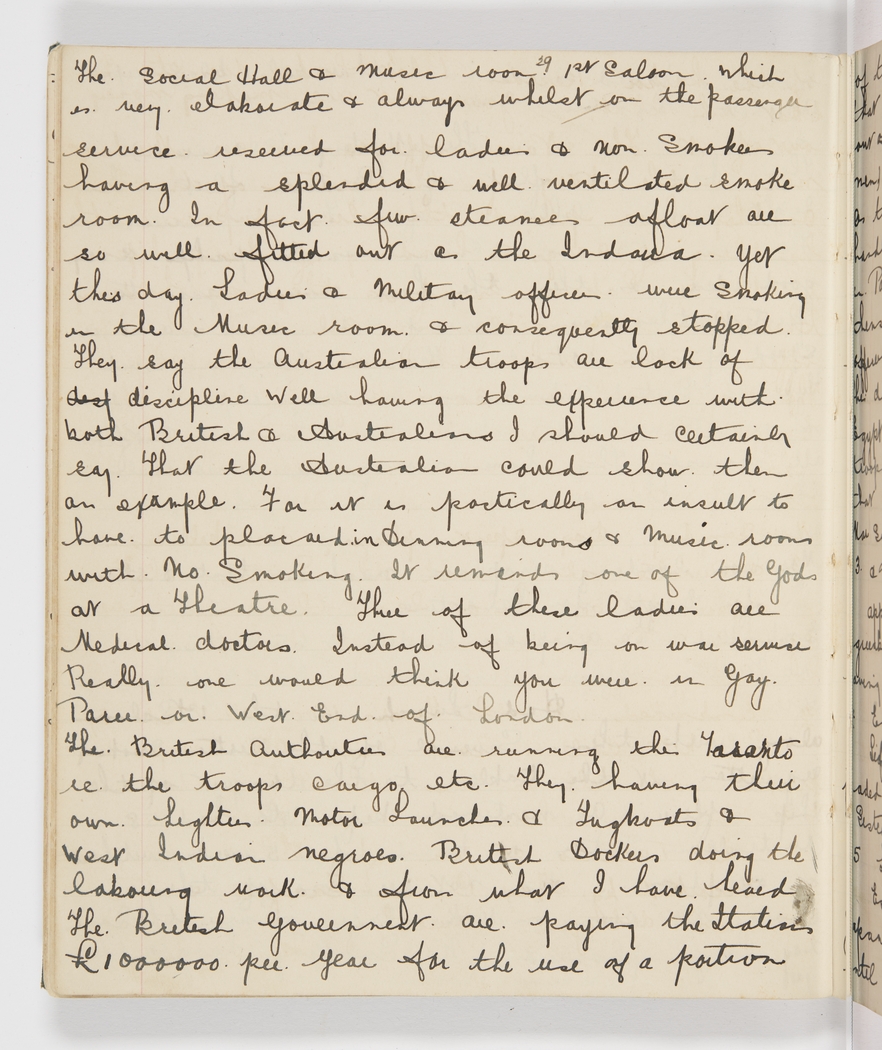 The. Social Hall & Music room 29 1st Saloon. which
is. very. elaborate & always whilst on the passenger
service. reserved for. ladies & non. Smokers
having a splendid & well. ventilated smoke
room. In fact. few. steamers afloat are
so well. fitted out as the Indarra. yet
this day. Ladies & Military officers. were Smoking
in the Music room. & consequently stopped.
They. say the Australian troops are lack of
desf discipline Well having the experience with.
both British & Australians I should certainly
say. That the Australian could show. them
an example. For it is practically an insult to
have. to placard. in Dinning rooms & Music. rooms
with. No. Smoking. It reminds one of the Gods
at a Theatre. Three of these ladies are
Medical. doctors. Instead of being on war service
Really. one would think you were. in Gay.
Paree. or. West. End. of. London.
The. British Authorities are. running the Taranto
ie. the troops cargo, etc. They. having their
own. Lighters. Motor Launches. & Tugboats &
West Indian negroes. British Dockers doing the
labouring work. & from what I have. heard
The. British Government. are. paying the Italians
£1000000. per. year for the use of a portion